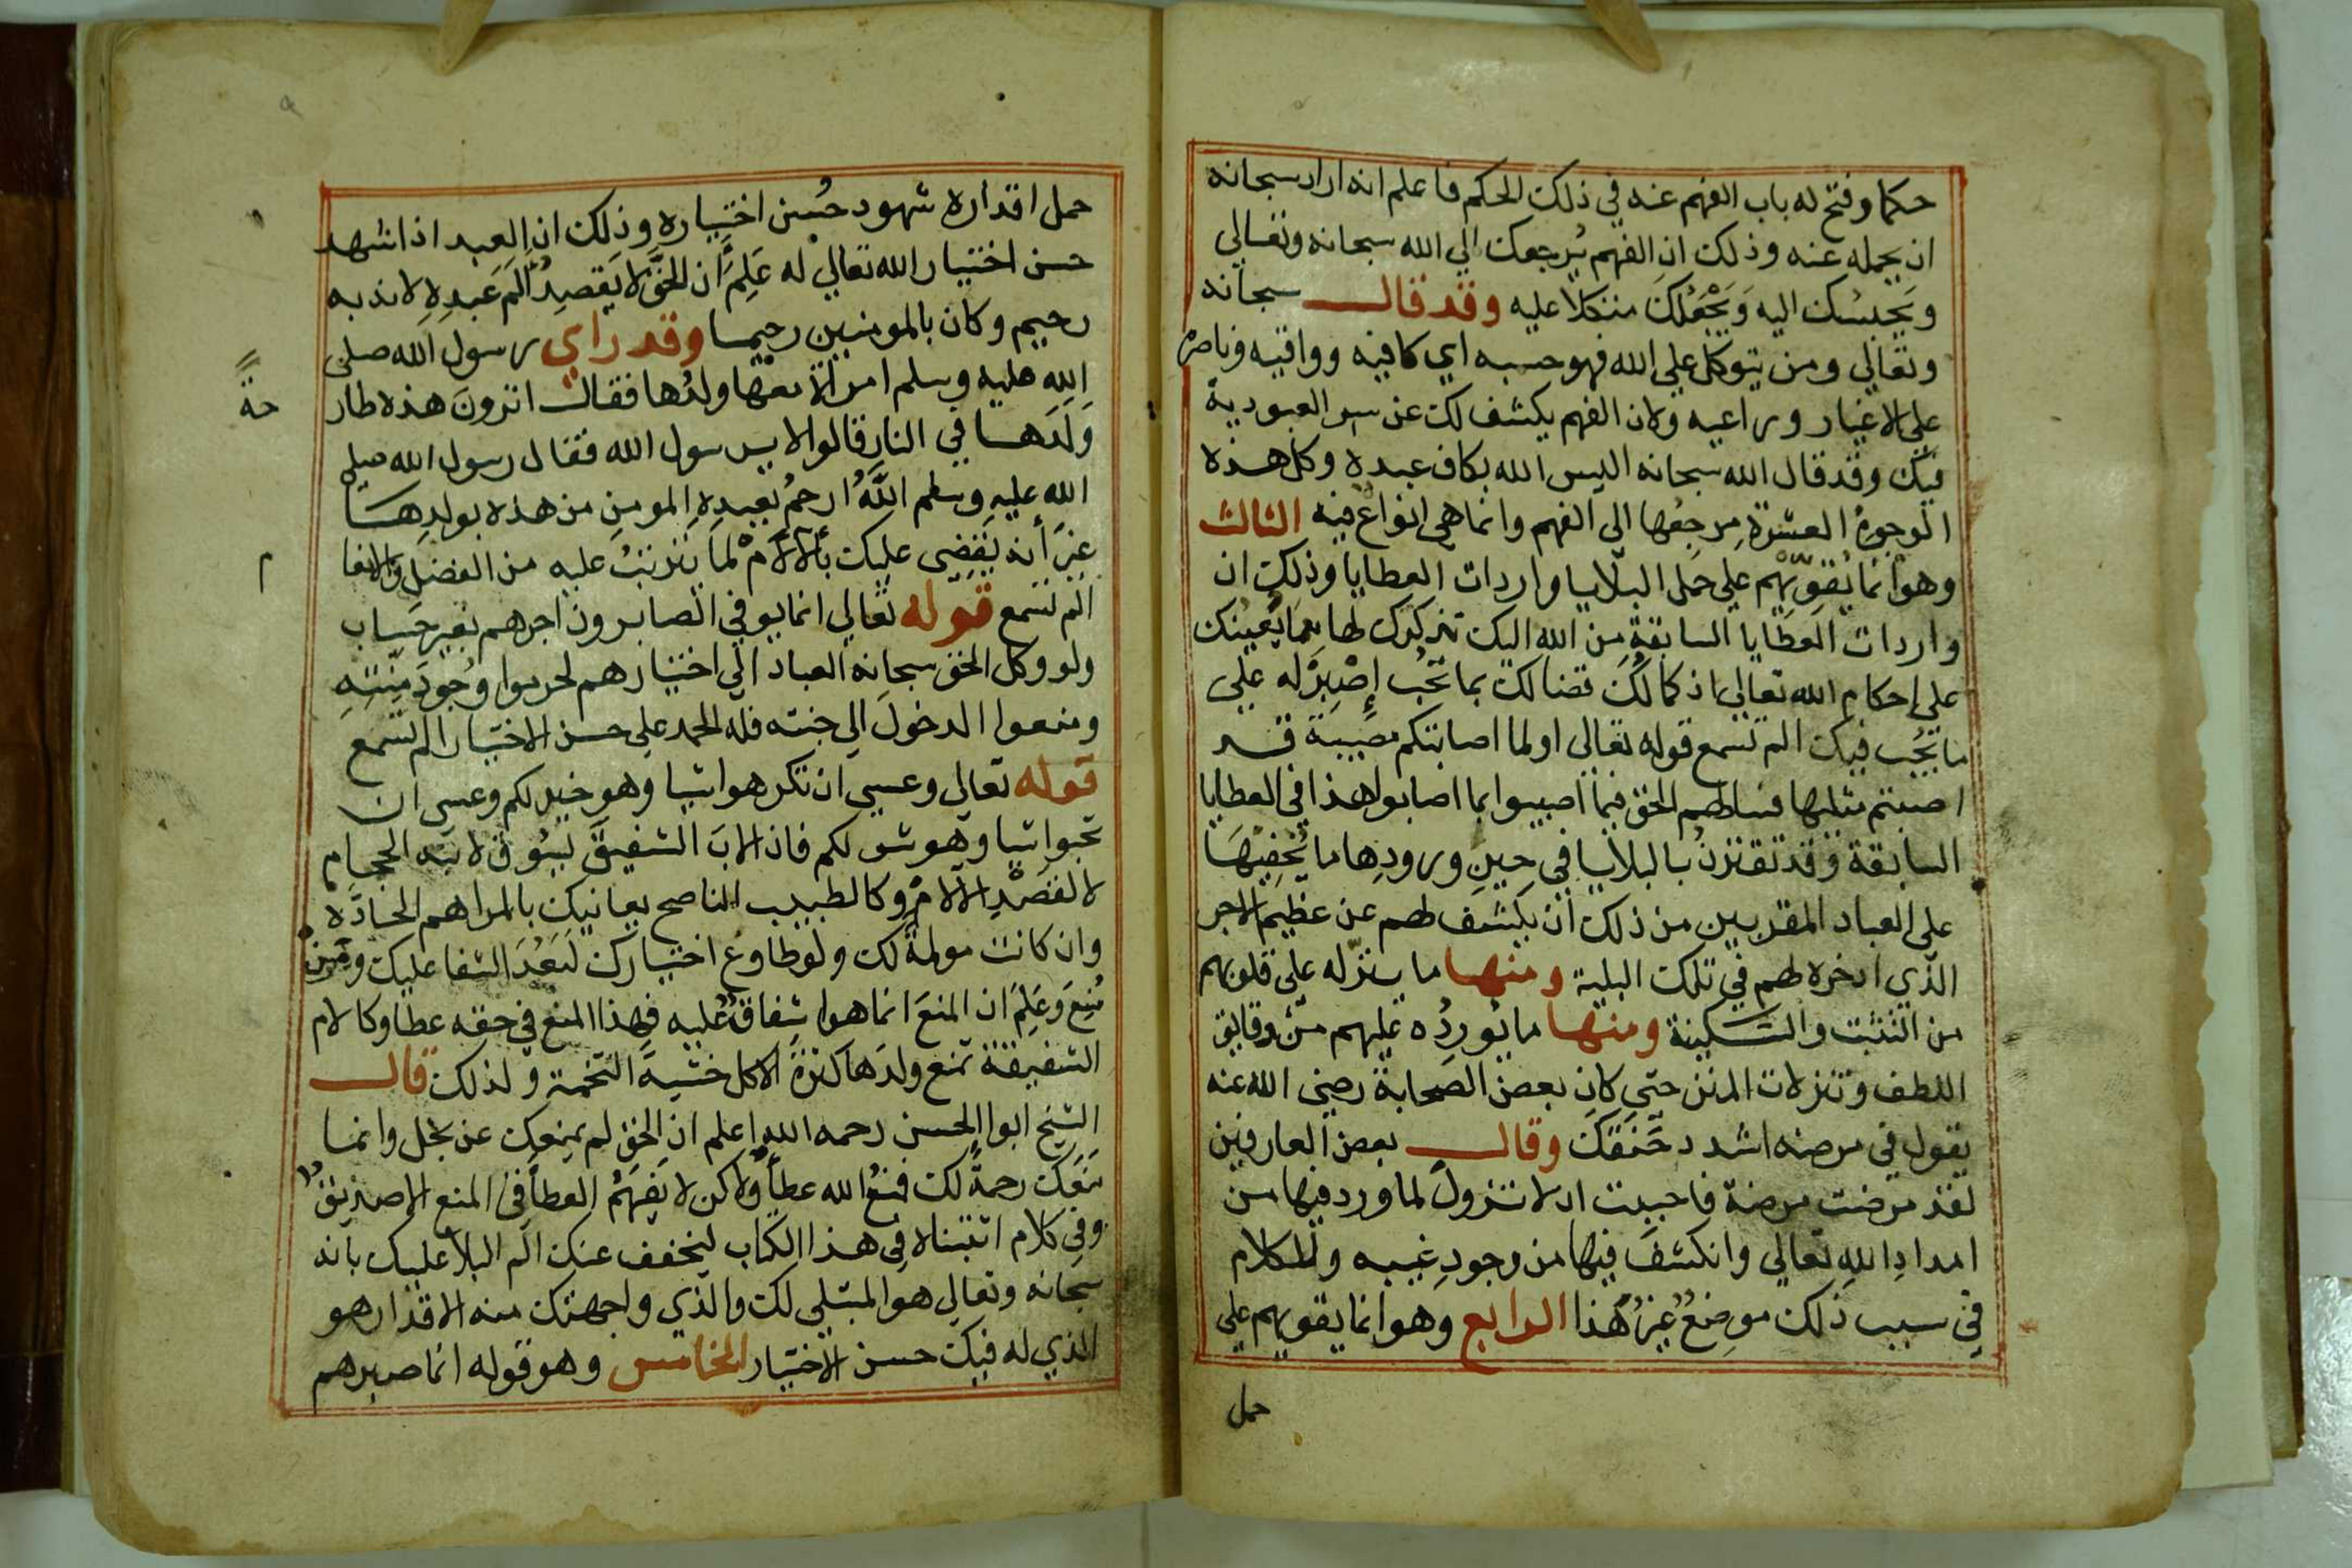 حكما وفتح له باب الفهم عنه في ذلك الحكم فاعلم انه اراد سبحانه
ان يحمله عنه وذلك ان الفهم يُرجعك الي الله سبحانه وتعالي
ويَحْبسُك اليه وَيَجْعَلُكَ متكلا عليه وقد قال سبحانه
وتعالي ومن يتوكل علي الله فهو حسبه اي كافيه وواقيه وناصره
علي الاغيار وراعيه ولان الفهم يكشف لك عن سر العبودية
فيك وقد قال الله سبحانه اليس الله بكاف عبده وكل هذه
الوجوهُ العشرة مرجعُها الى الفهم وانما هي انواع فيه الثالث
وهو انما يُقَوِّيهم علي حَمل البلايا واردات العطايا وذلك ان
واردات العطايا السابقةِ من الله اليك تذكرُك لها مما يُعينك
علي احكام الله تعالي اذ كما لك قضا لك بما تُحِب إصْبِرْ له علي
ما يُحِب فيك الم تسمع قوله تعالي اولما اصابتكم مصيبة قد
اصبتم مثليها فسلاهم الحق فيما اصيبوا بما اصابوا هذا في العطايا
السابقة وقد تقترنُ بالبلايا في حِينِ ورودِها ما يُخَفِّفُهَا
علي العباد المقربين من ذلك أن يكشف لهم عن عظيم الاجر
الّذي ادخره لهم في تلك البلية ومنها ما ينزّله على قلوبهم
من التثبت والسَّكينة ومنها ما يُورِدُه عليهم من دقايق
اللطف وتنزلات المنن حتي كان بعض الصحابة رضي الله عنه
يقول في مرضه اشدد خَنَقَكَ وقال بعض العارفين
لقد مرضت مرضة فاحببت ان لا تزولَ لما ورد فيها من
امدادِ اللهِ تعالي وانكشفَ فيها من وجودِ غيبه وللكلام
في سبب ذلك موضِعٌ غيرُ هٰذا الرابع وهو انما يقويهم علي
حمل
حمل اقداره شهود حُسن اختياره وذلك ان العبد اذا شهد
حسن اختيار الله تعالي له عَلِمَ أن الحَقَّ لا يَقصِدُ أَلَم عَبدِهِ لانه به
رحيم وكان بالمومنين رحيما وقد راي رسول الله صلي
الله عليه وسلم امراة معها ولدُها فقال اترونَ هذه طار
حةً
وَلَدَها في النار قالوا لا يرسول الله فقال رسول الله صلي
الله عليه وسلم اللَّهُ ارحمُ بعبدِهِ المومنِ من هذه بولدِها
غيرَ أنه يَقضِى عليك بألالامْ لما يترتبُ عليه من الفضل والانعا
م
الم تسمع قوله تعالي انما يوفي الصابرون اجرهم بغير حِسَاب
ولو وكل الحق سبحانه العباد الي اختيارهم لحرموا وُجُودَ مِنَّتِهِ
ومنعوا الدخولَ الي جنته فله الحمد علي حسن الاختيار الم تسمع
قوله تعالي وعسي ان تكرهوا شيا وهو خير لكم وعسى ان
تحبوا شيا وهو شر لكم فان الابَ الشفيقَ ليَسُوق لابنه الحجام
لا لقَصْدِ الالام وكالطبيب الناصح يعانيك بالمراهم الحادّه
وان كانت مولمةً لك ولو طاوع اختيارك لبَعُدَ الشفا عليك ومن
مُنِعَ وَعَلِمَ ان المنعَ انما هو اشِفاق عليه فهذا المنع في حقه عطا وكالام
الشفيقة تمنع ولدَها كثرةَ الاكل خشيةَ التخمة ولذلك قال
الشيخ ابوا الحسن رحمه الله اعلم ان الحق لم يمنعك عن بخل وانما
منعك رحمةً لك فمنعُ الله عطأً ولاكن لا يَفهَمُ العطأَ في المنع الا صديق
وفي كلام اثبتناه في هذا الكتاب ليخفف عنك الَم البلأ عليك بانه
سبحانه وتعالي هو المبتلي لك والّذي واجهتك منه الاقدار هو
الذي له فيك حسن الاختيار الخامس وهو قوله انما صبرهم